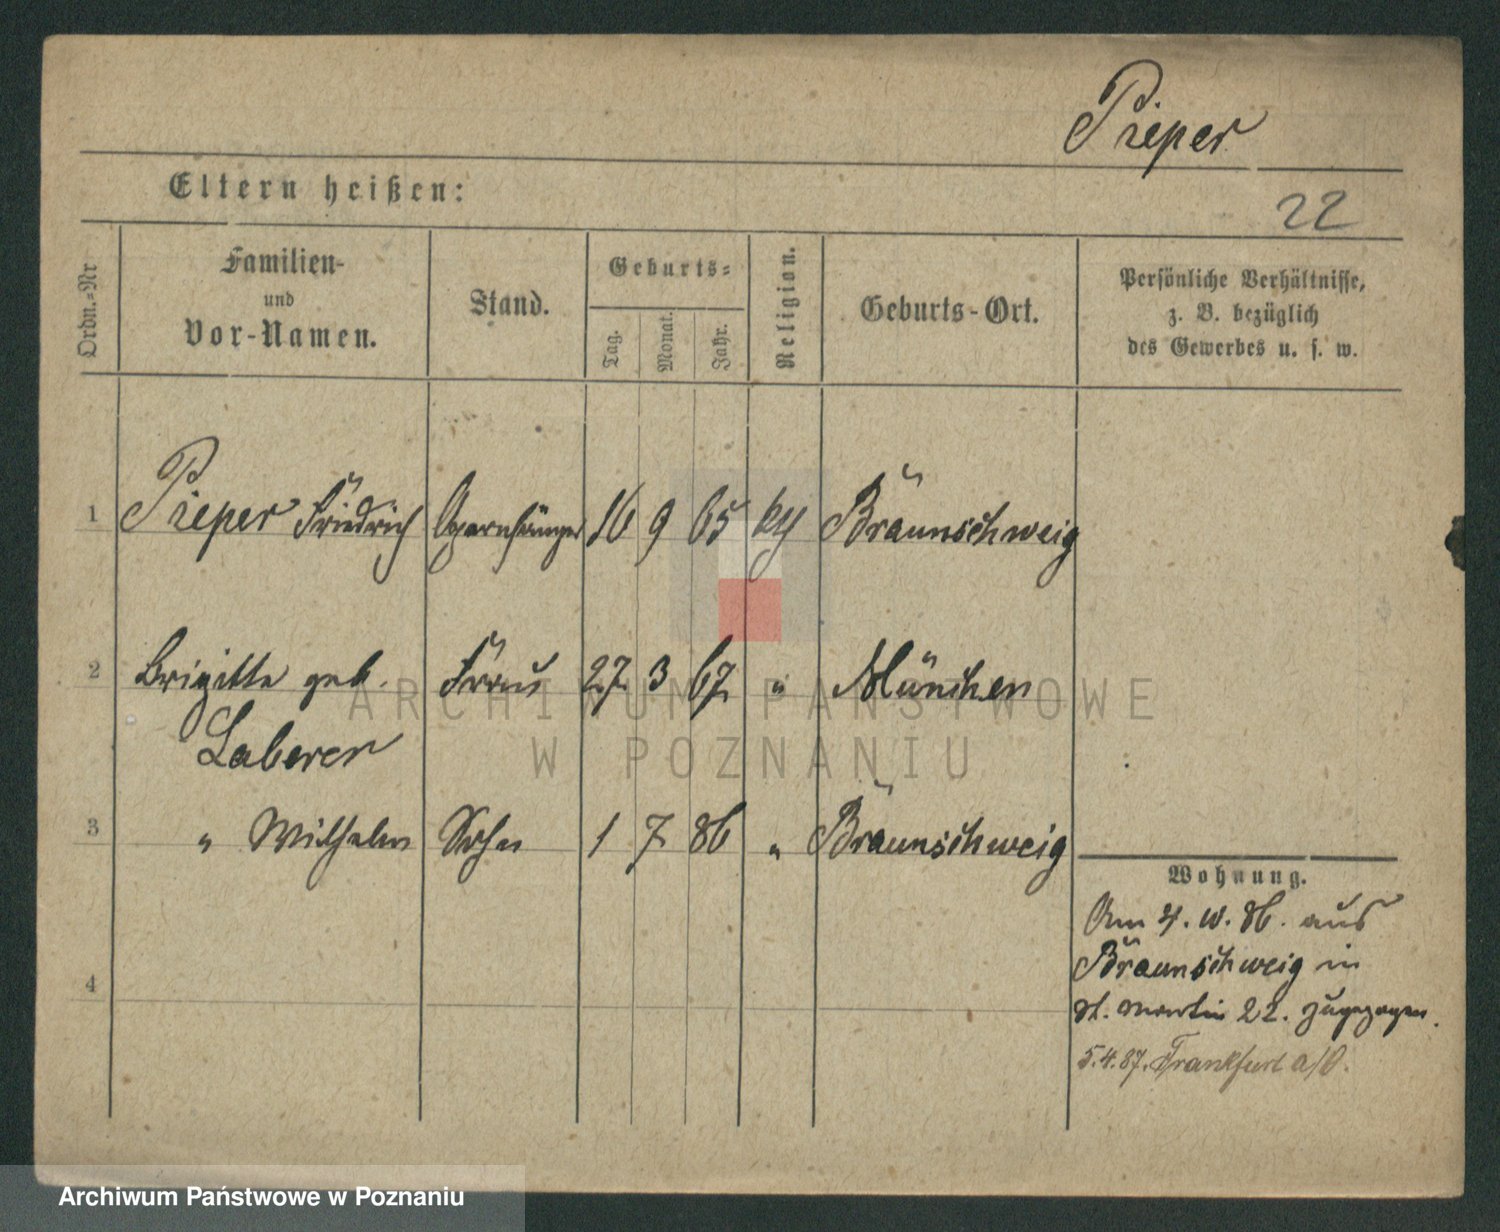 Pieper
Eltern heißen:
22
Ordn.-Nr
Familien-
und
Vor-Namen.
Stand.
Geburts-
Tag.
Monat.
Jahr.
Religion.
Geburts-Ort.
Persönliche Verhältnisse,
z. B. bezüglich
des Gewerbes u. s. w.
1 Pieper Friedrich Opernsänger 16 9 65 Braunschweig
2 Brigitte geb. Frau 27 3 67 " München
Laberer
3 " Wilhelm Sohn 1 7 86 " Braunschweig
Wohnung.
Am 4. 86. aus
Braunschweig in
4
St. Martin 22. zugezogen.
5.4.87. Frankfurt a/O.
ARCHIWUM PAŃSTWOWE
W POZNANIU
Archiwum Państwowe w Poznaniu